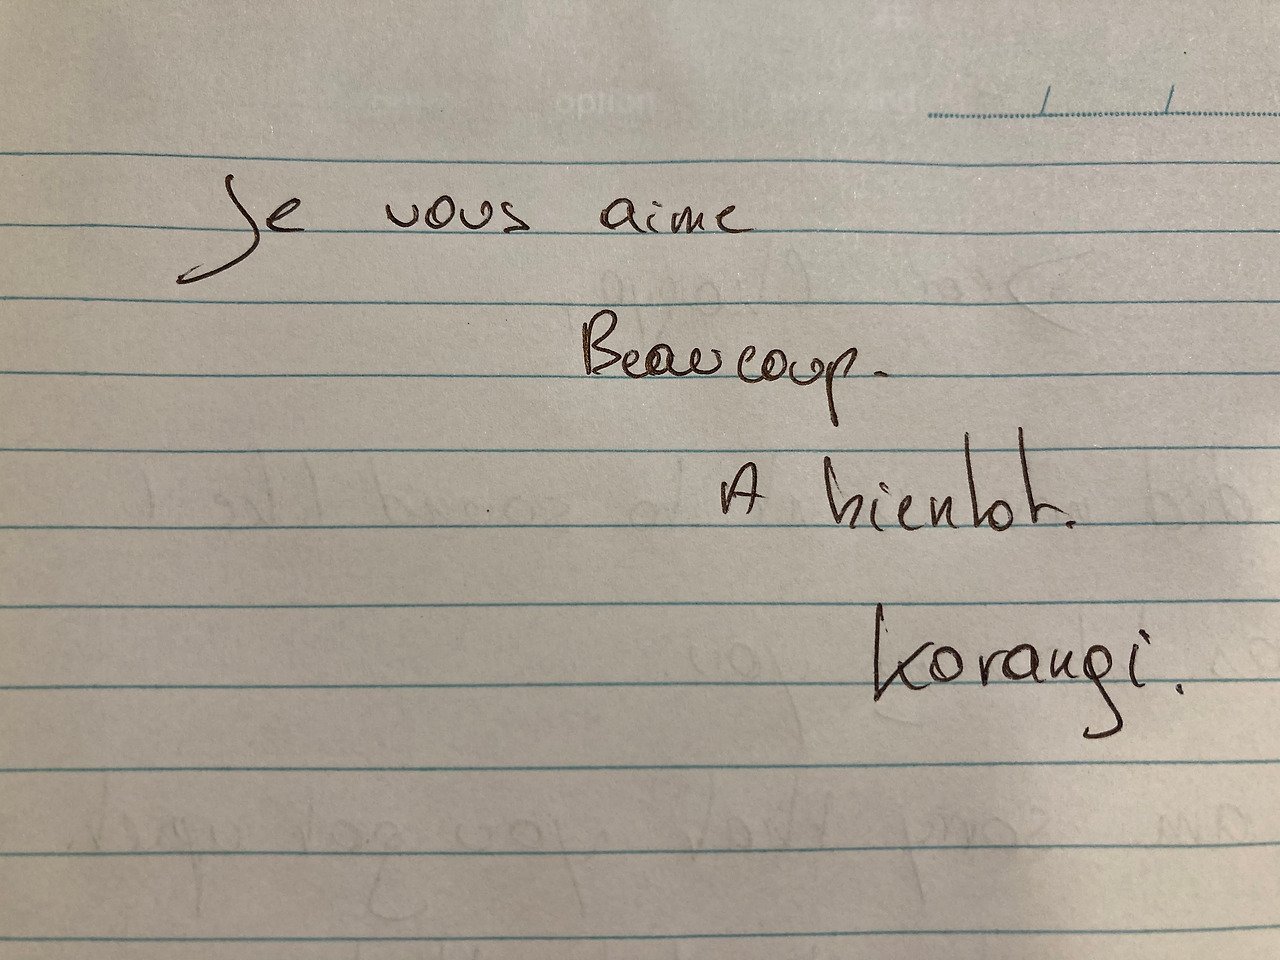 Je vous aime
Beaucoup.
A bientot.
Korangi.